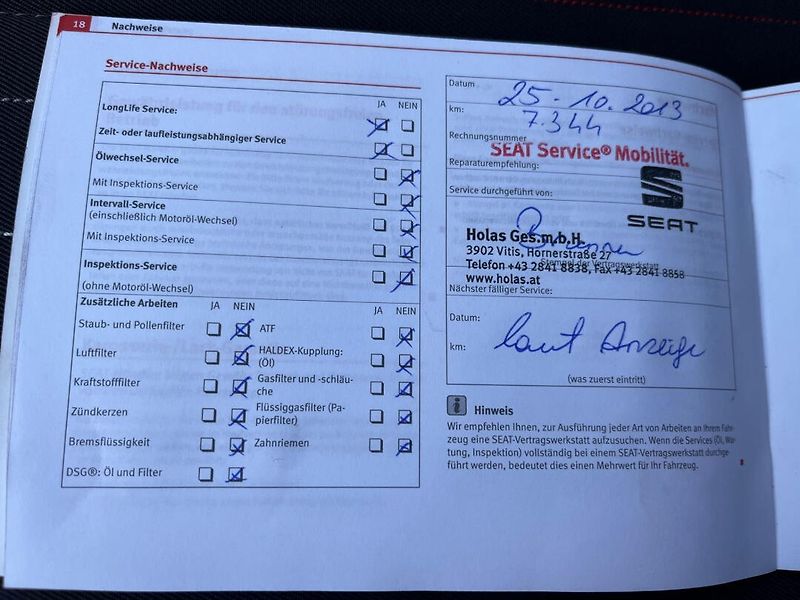 18 Nachweise
Service-Nachweise
JA NEIN
LongLife Service:
Zeit- oder laufleistungsabhängiger Service
Ölwechsel-Service
Mit Inspektions-Service
Intervall-Service
(einschließlich Motoröl-Wechsel)
Mit Inspektions-Service
Inspektions-Service
(ohne Motoröl-Wechsel)
Zusätzliche Arbeiten JA NEIN JA NEIN
Staub- und Pollenfilter ATF
Luftfilter HALDEX-Kupplung:
(Öl)
Kraftstofffilter Gasfilter und -schläu-
che
Zündkerzen Flüssiggasfilter (Pa-
pierfilter)
Bremsflüssigkeit Zahnriemen
DSG®: Öl und Filter
Datum 25.10.2013
km: 7.344
Rechnungsnummer
SEAT Service® Mobilität.
Reparaturempfehlung:
Service durchgeführt von:
SEAT
Holas Ges.m.b.H.
3902 Vitis, Hornerstraße 27
Stempel der Vertragswerkstatt
Telefon +43 2841 8838, Fax +43 2841 8858
www.holas.at
Nächster fälliger Service:
Datum:
km: laut Anzeige
(was zuerst eintritt)
i Hinweis
Wir empfehlen Ihnen, zur Ausführung jeder Art von Arbeiten an Ihrem Fahr-
zeug eine SEAT-Vertragswerkstatt aufzusuchen. Wenn die Services (Öl, War-
tung, Inspektion) vollständig bei einem SEAT-Vertragswerkstatt durchge-
führt werden, bedeutet dies einen Mehrwert für Ihr Fahrzeug.